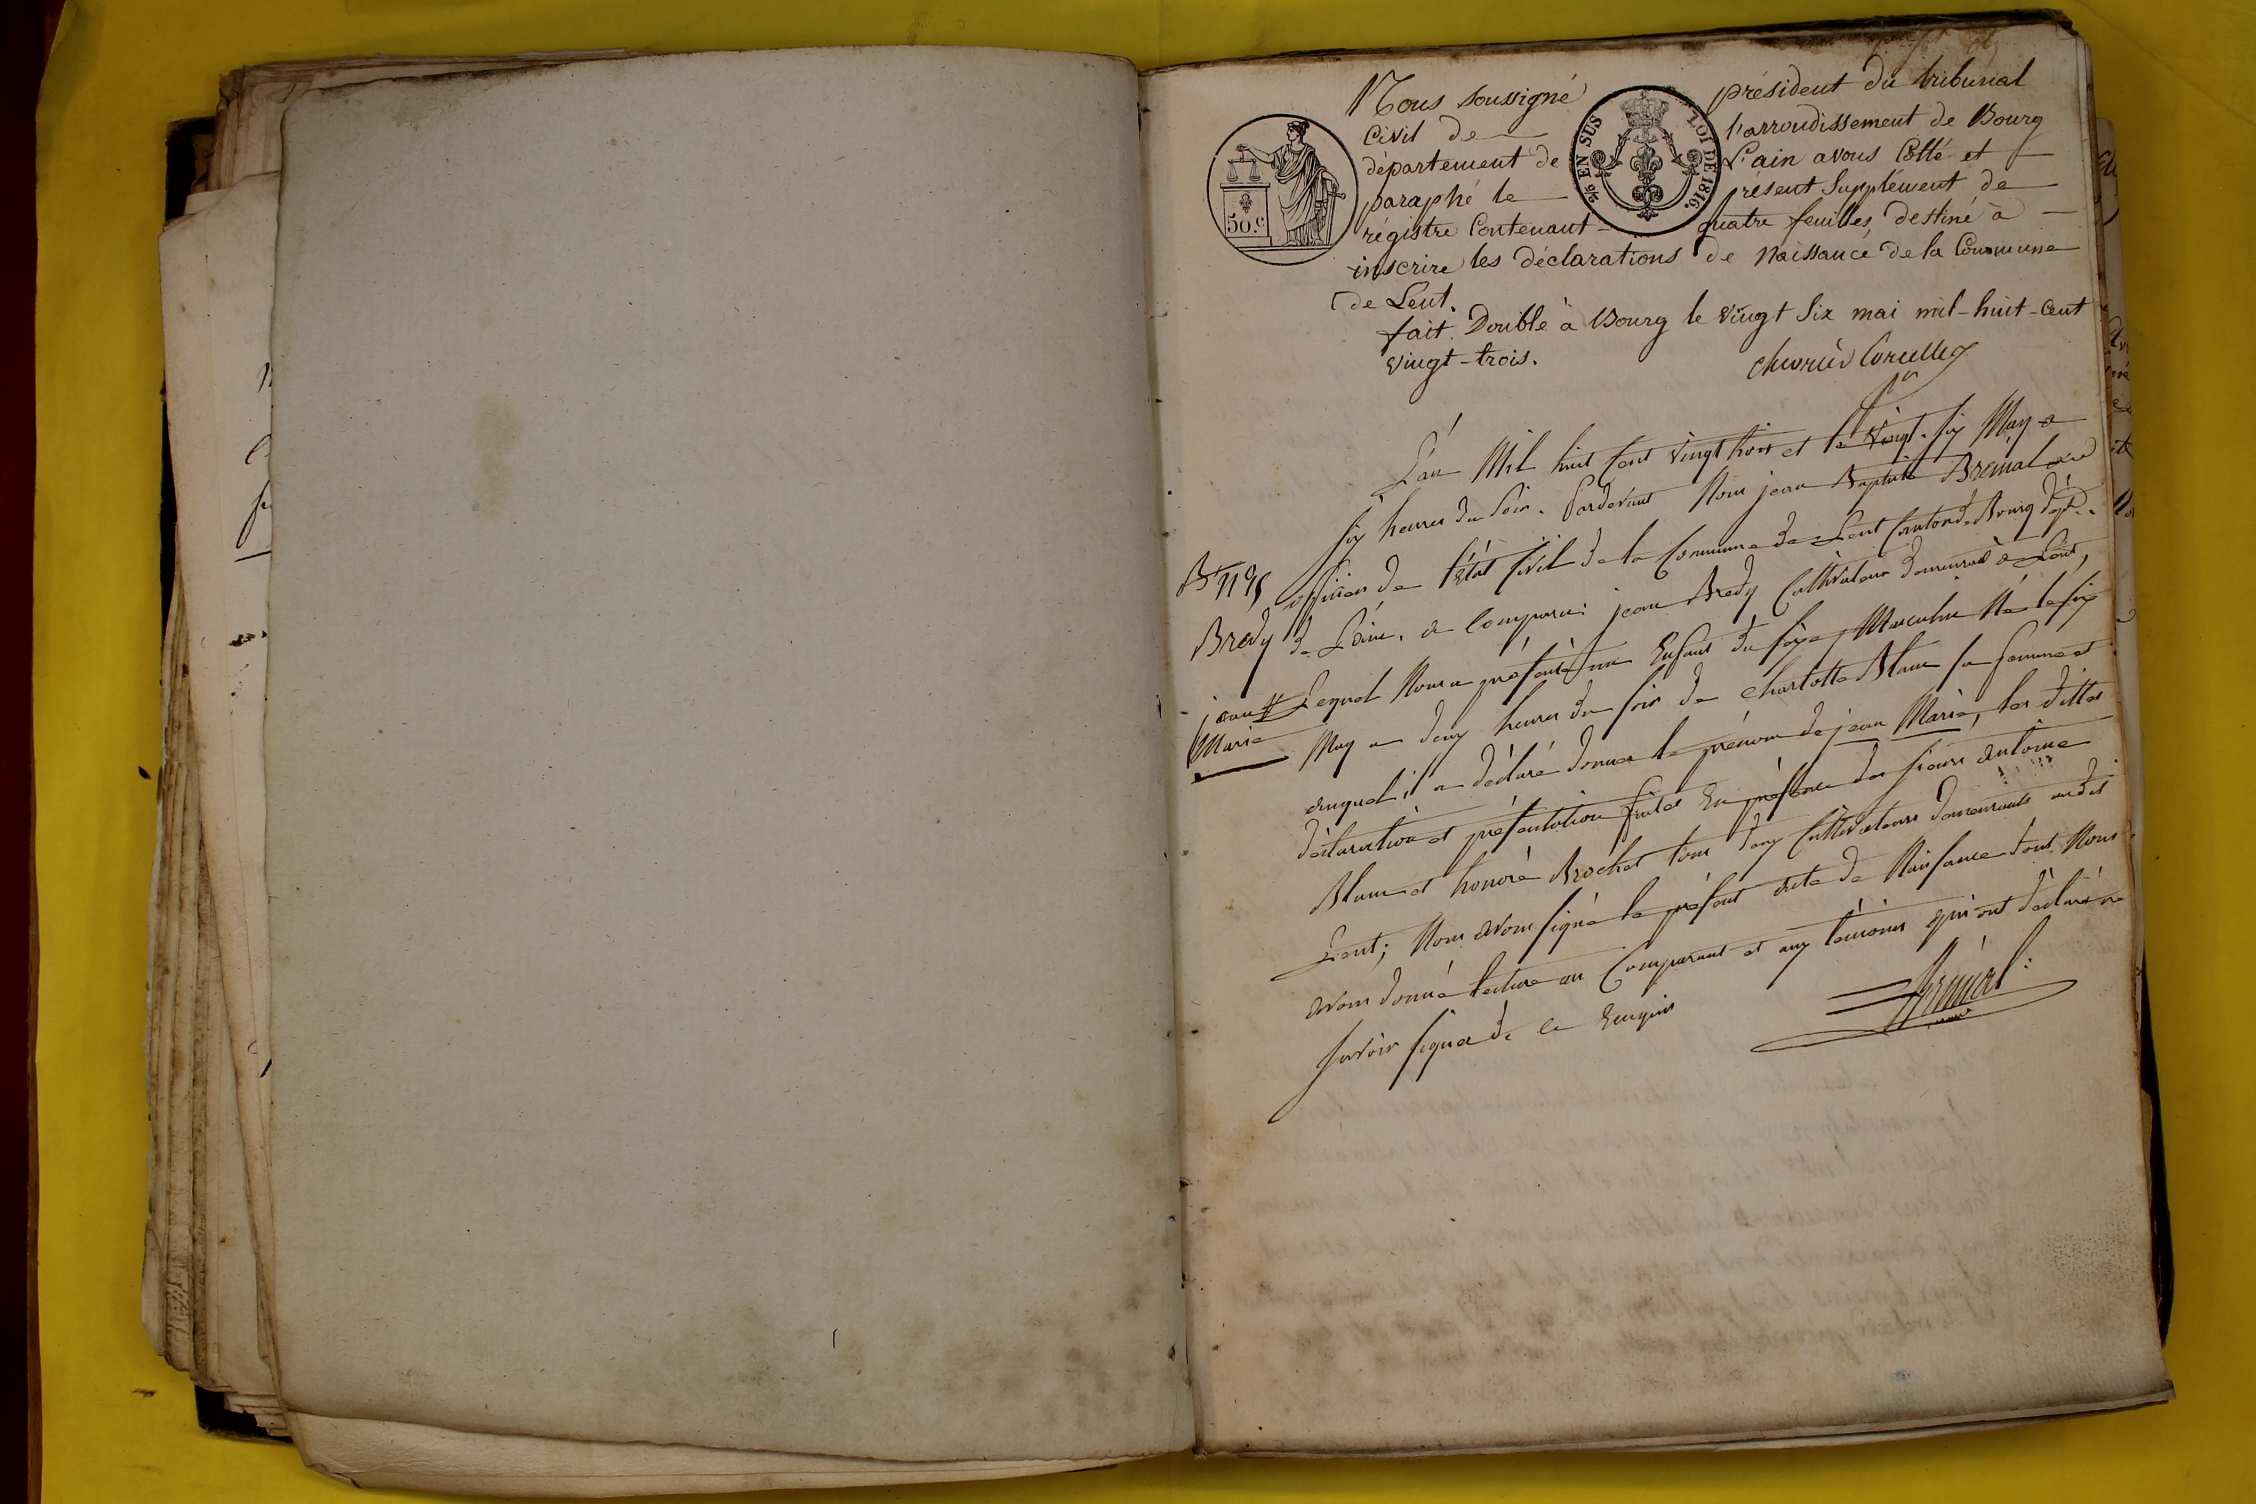 Nous soussigné président du tribunal
Civil de l'arrondissement de Bourg
département de L'ain avons Cotté et
paraphé le présent Supplément de
régistre Contenant quatre feuilles, destiné à
inscrire les déclarations de Naissance de la Commune
de Lent.
fait Double à Bourg le vingt Six mai mil-huit-Cent
vingt-trois.
chevrier Corcelles
50.c
2/5 EN SUS
LOI DE 1816.
L'an Mil huit Cent vingt trois et le vingt-six May a
six heures du soir. Pardevant Nous jean Baptiste
officier de l'état civil de la Commune de Lent Canton de Bourg dépt.
de L'ain. a Comparu: jean Bredy Cultivateur demeurant a Lent,
Lequel Nous a présenté un Enfant du sexe Masculin Né le six
May a deux heures du soir de charlotte Blanc sa femme et
auquel il a déclaré donner le prénom de jean Marie, les dittes
déclaration et présentation faites En présence des sieurs antoine
Blanc et honoré Brochet tous deux Cultivateurs demeurants audit
Lent; Nous avons signé le présent acte de Naissance dont Nous
avons donné lecture au Comparant et aux témoins qui ont déclaré ne
savoir signer de ce Enquis
Bredy
jean
Marie